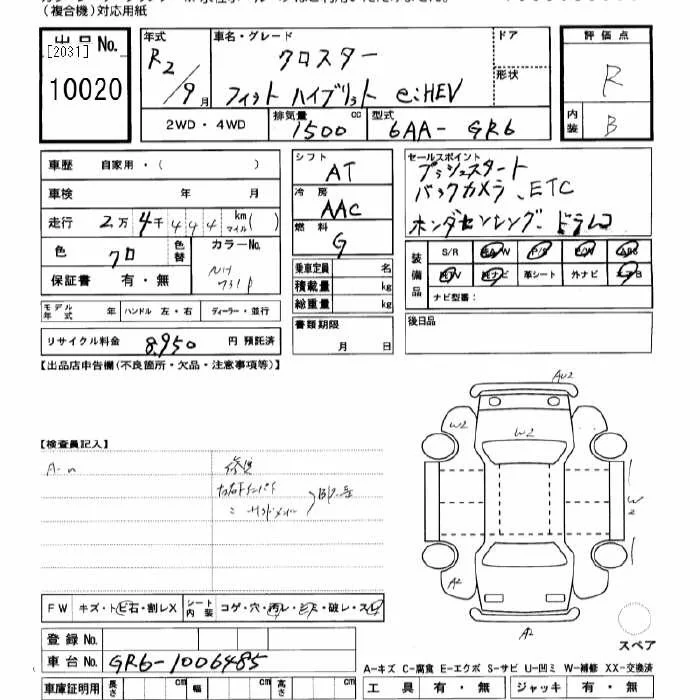 (複合機)対応用紙
出品No.
[2031]
10020
年式
R2/9月
車名・グレード
クロスター
フィット ハイブリット e:HEV
ドア
形状
評価点
R
内装
B
2WD・4WD
排気量
1500
cc
型式
6AA-GR6
車歴 自家用・( )
車検 年 月
走行 2万4千444 km マイル( )
色
クロ
色替
カラーNo.
NH
731P
保証書 有・無
シフト
AT
冷房
AAC
燃料
G
乗車定員 名
積載量 kg
総重量 kg
セールスポイント
プッシュスタート
バックカメラ、ETC
ホンダセンシング、ドラレコ
装備品
S/R
P/S
P/W
ABS
革シート
外ナビ
ナビ型番:
モデル年式 年
ハンドル 左・右
ディーラー・並行
書類期限
月 日
後日品
リサイクル料金 8,950 円 預託済
【出品店申告欄(不良箇所・欠品・注意事項等)】
【検査員記入】
AU2
W2
W2
W2
A2
A2
FW キズ・トビ石・割レX
シート内装
コゲ・穴・汚レ・シミ・破レ・スレ
スペア
登録No.
車台No. GR6-1006485
A-キズ C-腐食 E-エクボ S-サビ U-凹ミ W-補修 XX-交換済
車庫証明用
長さ cm
幅 cm
高さ cm
工具 有・無
ジャッキ 有・無